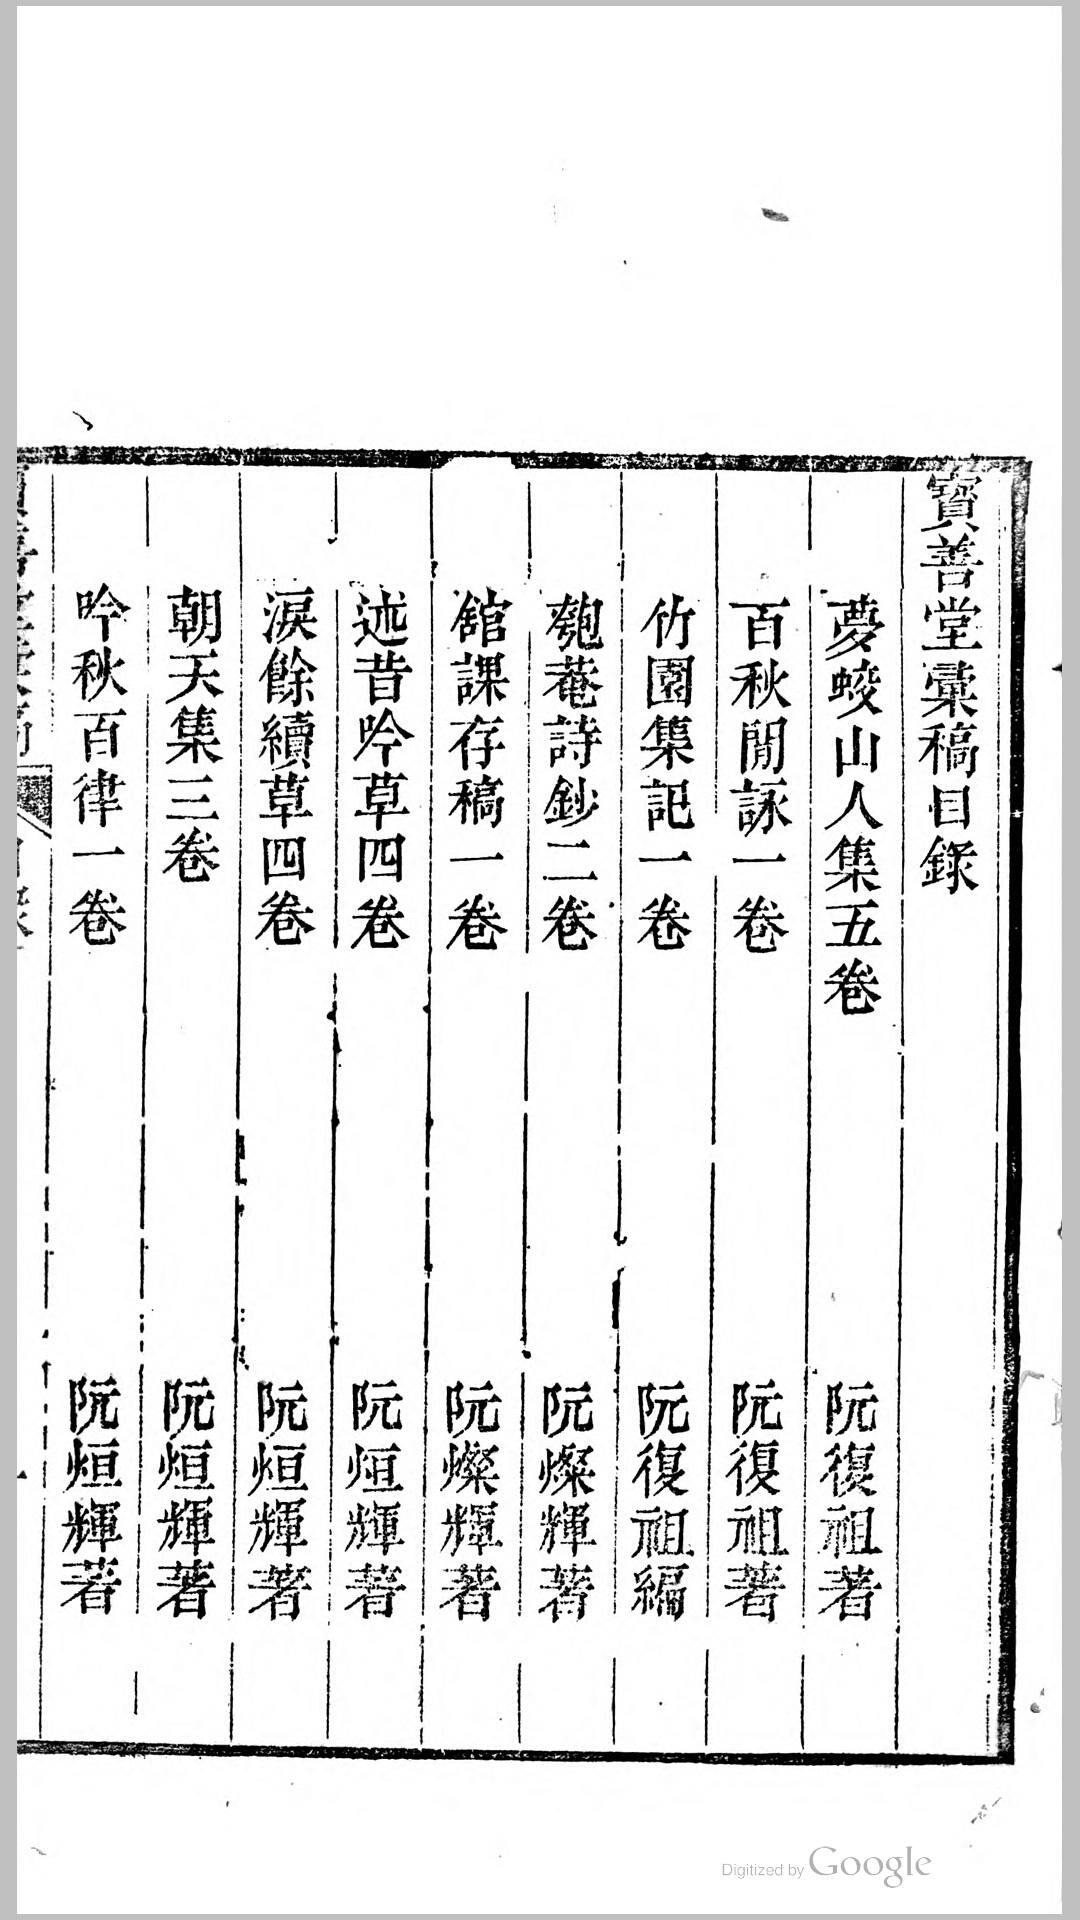 寶善堂彙稿目錄
夢蛟山人集五卷 阮復祖著
百秋閒詠一卷 阮復祖著
竹園集記一卷 阮復祖編
匏菴詩鈔二卷 阮燦輝著
舘課存稿一卷 阮燦輝著
述昔吟草四卷 阮烜輝著
淚餘續草四卷 阮烜輝著
朝天集三卷 阮烜輝著
吟秋百律一卷 阮烜輝著
Digitized by Google